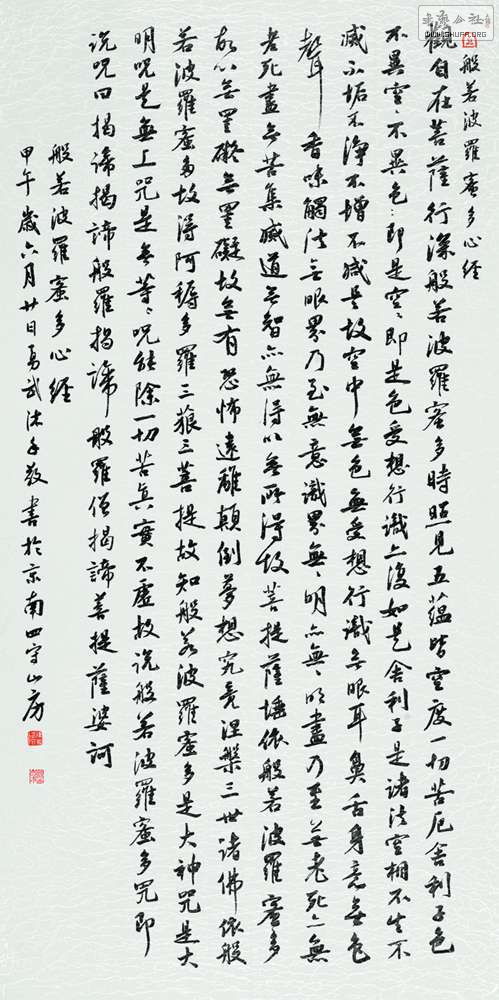 般若波羅蜜多心經
觀自在菩薩行深般若波羅蜜多時照見五蘊皆空度一切苦厄舍利子色
不異空〻不異色〻即是空〻即是色受想行識亦復如是舍利子是諸法空相不生不
滅不垢不淨不增不減是故空中無色無受想行識無眼耳鼻舌身意無色
聲香味觸法無眼界乃至無意識界無〻明亦無〻明盡乃至無老死亦無
老死盡無苦集滅道無智亦無得以無所得故菩提薩埵依般若波羅蜜多
故心無罣礙無罣礙故無有恐怖遠離顛倒夢想究竟涅槃三世諸佛依般
若波羅蜜多故得阿耨多羅三藐三菩提故知般若波羅蜜多是大神咒是大
明咒是無上咒是無等〻咒能除一切苦真實不虛故說般若波羅蜜多咒即
說咒曰揭諦揭諦般羅揭諦般羅僧揭諦菩提薩婆訶
般若波羅蜜多心經
甲午歲六月廿日 武沐手敬書於京南四守山房
书艺公社
WWW.SHUFA.ORG